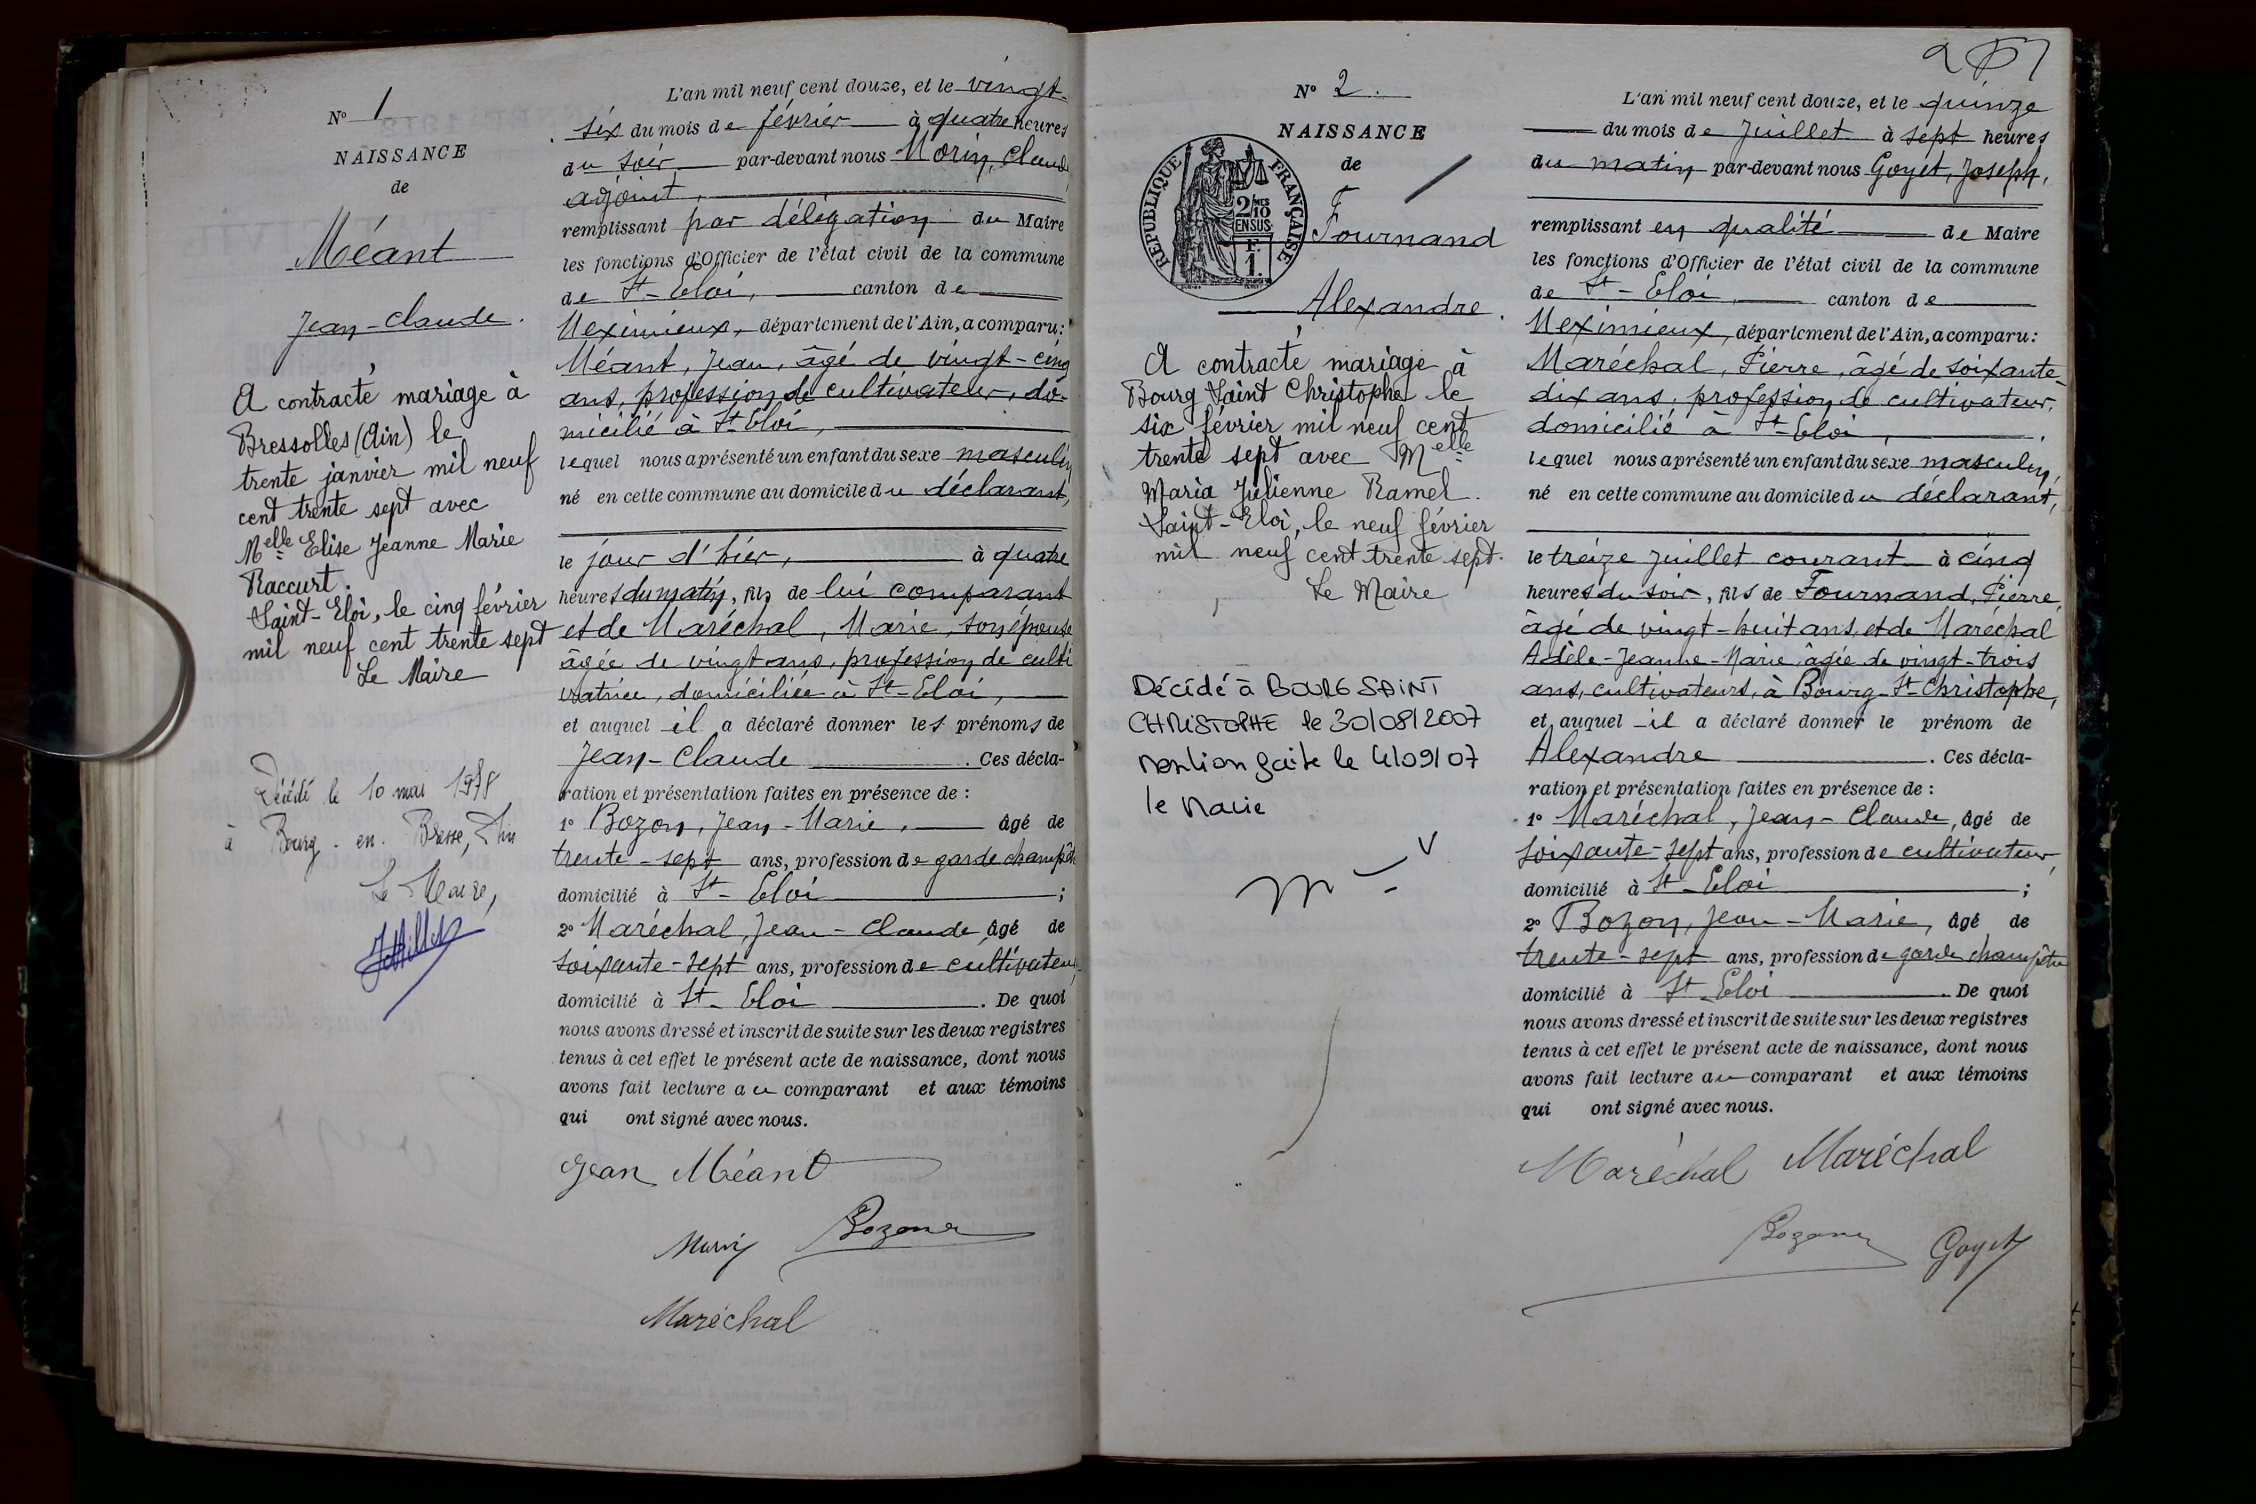 N° 1
NAISSANCE
de
Méant
Jean-Claude.
A contracté mariage à
Bressolles (Ain) le
trente janvier mil neuf
cent trente sept avec
Melle Elise Jeanne Marie
Raccurt.
Saint-Eloi, le cinq février
mil neuf cent trente sept
Le Maire
Décédé le 10 mai 1978
à Bourg-en-Bresse, Ain
Le Maire,
L'an mil neuf cent douze, et le vingt-
six du mois de février à quatre heures
du soir par-devant nous Morin, Claude
adjoint,
remplissant par délégation du Maire
les fonctions d'Officier de l'état civil de la commune
de St-Eloi, canton de
Meximieux, département de l'Ain, a comparu:
Méant, Jean, âgé de vingt-cinq
ans, profession de cultivateur, do-
micilié à St Eloi,
lequel nous a présenté un enfant du sexe masculin
né en cette commune au domicile du déclarant,
le jour d'hier, à quatre
heures du matin, fils de lui comparant
et de Maréchal, Marie, son épouse
âgée de vingt ans, profession de culti
vatrice, domiciliée à St-Eloi,
et auquel il a déclaré donner les prénoms de
Jean-Claude. Ces décla-
ration et présentation faites en présence de :
1° Bozon, Jean-Marie, âgé de
trente-sept ans, profession de garde champêtre
domicilié à St-Eloi ;
2° Maréchal, Jean-Claude, âgé de
soixante-sept ans, profession de cultivateur,
domicilié à St-Eloi. De quoi
nous avons dressé et inscrit de suite sur les deux registres
tenus à cet effet le présent acte de naissance, dont nous
avons fait lecture au comparant et aux témoins
qui ont signé avec nous.
Jean Méant
Morin Bozon
Maréchal
N° 2.
NAISSANCE
de
RÉPUBLIQUE FRANÇAISE
2/10 EN SUS
F.
1.
Fournand
Alexandre.
A contracté mariage à
Bourg Saint Christophe le
six février mil neuf cent
trente sept avec Melle
Maria Julienne Ramel.
Saint-Eloi, le neuf février
mil neuf cent trente sept.
Le Maire
Décédé à BOURG SAINT
CHRISTOPHE le 30/08/2007
mention faite le 4/09/07
le Maire
L'an mil neuf cent douze, et le quinze
du mois de Juillet à sept heures
du matin par-devant nous Goyet, Joseph,
remplissant en qualité de Maire
les fonctions d'Officier de l'état civil de la commune
de St-Eloi, canton de
Meximieux, département de l'Ain, a comparu:
Maréchal, Pierre, âgé de soixante-
dix ans, profession de cultivateur,
domicilié à St-Eloi,
lequel nous a présenté un enfant du sexe masculin,
né en cette commune au domicile du déclarant,
le treize juillet courant à cinq
heures du soir, fils de Fournand, Pierre,
âgé de vingt-huit ans, et de Maréchal
Adèle-Jeanne-Marie, âgée de vingt-trois
ans, cultivateurs, à Bourg-St-Christophe,
et auquel il a déclaré donner le prénom de
Alexandre. Ces décla-
ration et présentation faites en présence de :
1° Maréchal, Jean-Claude, âgé de
soixante-sept ans, profession de cultivateur,
domicilié à St-Eloi ;
2° Bozon, Jean-Marie, âgé de
trente-sept ans, profession de garde champêtre
domicilié à St Eloi. De quoi
nous avons dressé et inscrit de suite sur les deux registres
tenus à cet effet le présent acte de naissance, dont nous
avons fait lecture au comparant et aux témoins
qui ont signé avec nous.
Maréchal Maréchal
Bozon Goyet